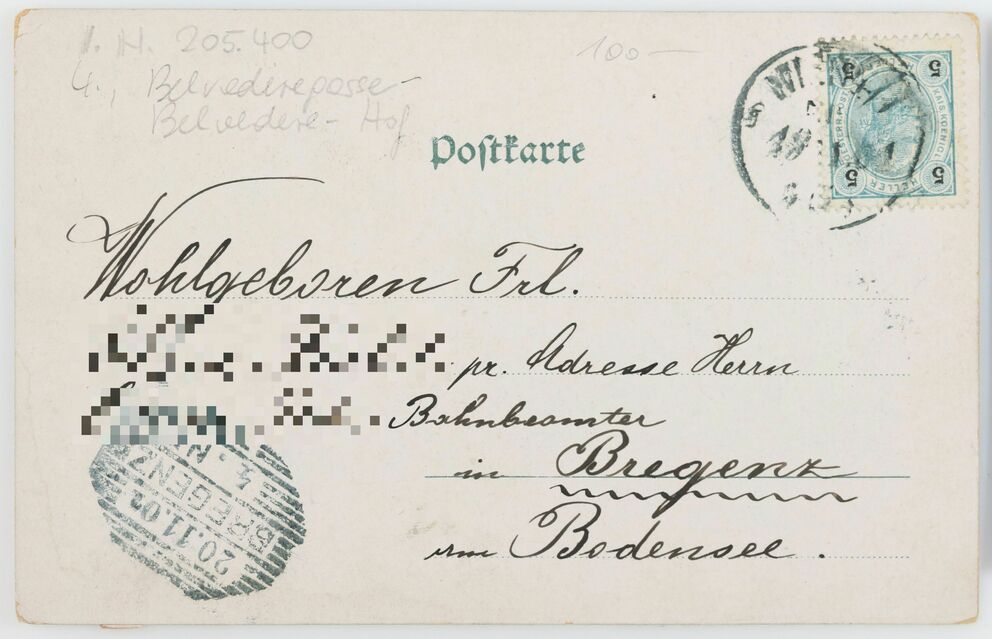 I. N. 205.400
4., Belvederegasse -
Belvedere - Hof
100 —
Postkarte
5 5
KAIS. KOENIGL.
HELLER
5 5
Wohlgeboren Frl.
pr. Adresse Herrn
Bahnbeamter
in Bregenz
am Bodensee.
BREGENZ
20.11.02
BREGENZ